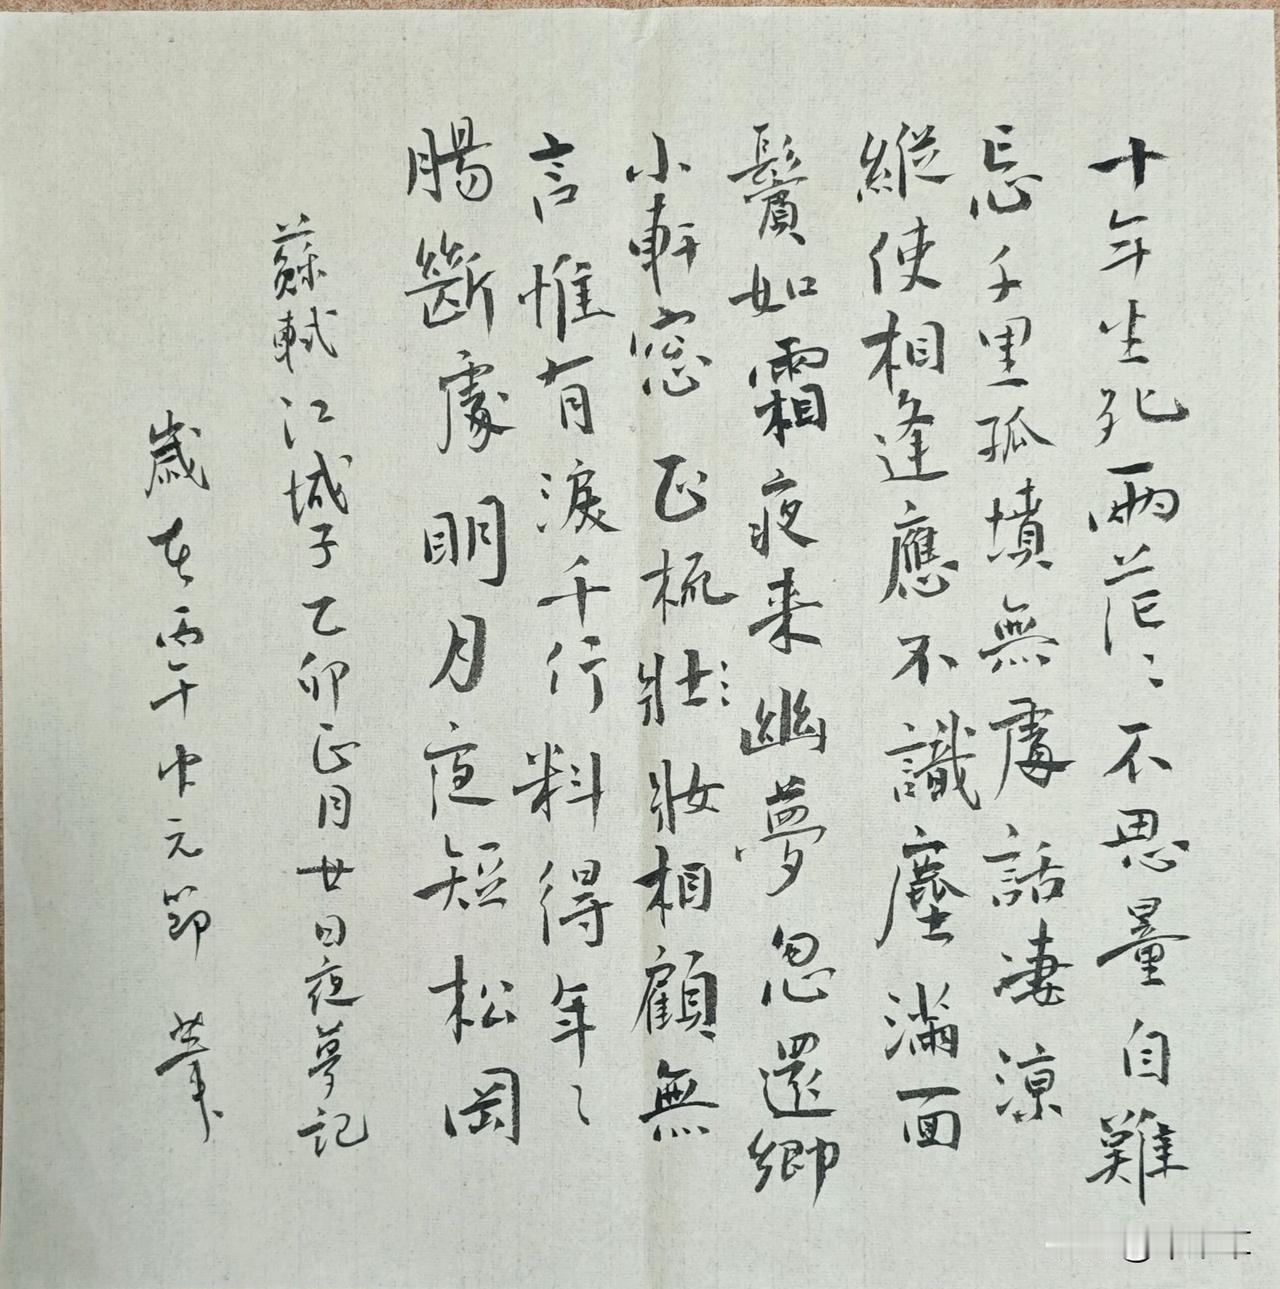 十年生死兩茫〻不思量自難
忘千里孤墳無處話淒涼
縱使相逢應不識塵滿面
鬢如霜夜来幽夢忽還鄉
小軒窓正梳壯〻妝相顧無
言惟有淚千行料得年〻
腸斷處明月夜短松岡
蘇軾江城子乙卯正月廿日夜夢記
歲在丙午中元節